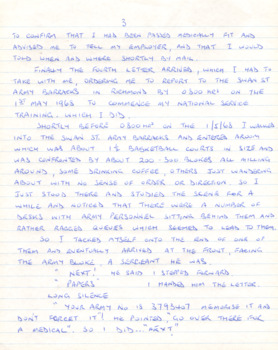 3
TO CONFIRM THAT I HAD BEEN PASSED MEDICALLY FIT AND
ADVISED ME TO TELL MY EMPLOYER, AND THAT I WOULD
TOLD WHEN AND WHERE SHORTLY BY MAIL.
FINALLY THE FOURTH LETTER ARRIVED, WHICH I HAD TO
TAKE WITH ME, ORDERING ME TO REPORT TO THE SWAN ST
ARMY BARRACKS IN RICHMOND BY 0800 HRS ON THE
1ST MAY 1968 TO COMMENCE MY NATIONAL SERVICE
TRAINING. WHICH I DID.
SHORTLY BEFORE 0800 HRS ON THE 1/5/68 I WALKED
INTO THE SWAN ST ARMY BARRACKS AND ENTERED A ROOM
WHICH WAS ABOUT 1½ BASKETBALL COURTS IN SIZE AND
WAS CONFRONTED BY ABOUT 200-300 BLOKES ALL MILLING
AROUND, SOME DRINKING COFFEE, OTHERS JUST WANDERING
ABOUT WITH NO SENSE OF ORDER OR DIRECTION. SO I
JUST STOOD THERE AND STUDIED THE SCENE FOR A
WHILE AND NOTICED THAT THERE WERE A NUMBER OF
DESKS WITH ARMY PERSONNEL SITTING BEHIND THEM AND
RATHER RAGGED QUEUES WHICH SEEMED TO LEAD TO THEM.
SO I TACKED MYSELF ONTO THE END OF ONE OF
THEM AND EVENTUALLY ARRIVED AT THE FRONT, FACING
THE ARMY BLOKE. A SERGEANT HE WAS.
"NEXT!" HE SAID I STEPPED FORWARD
"PAPERS" I HANDED HIM THE LETTER.
LONG SILENCE
"YOUR ARMY NO IS MEMORISE IT AND
DON'T FORGET IT! HE POINTED, "GO OVER THERE FOR
A MEDICAL". SO I DID... "NEXT"